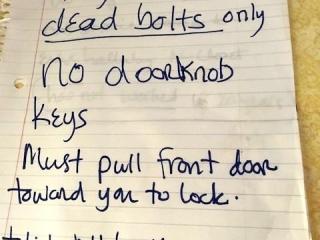 dead bolts only
no doorknob
keys
Must pull front door
toward you to lock.